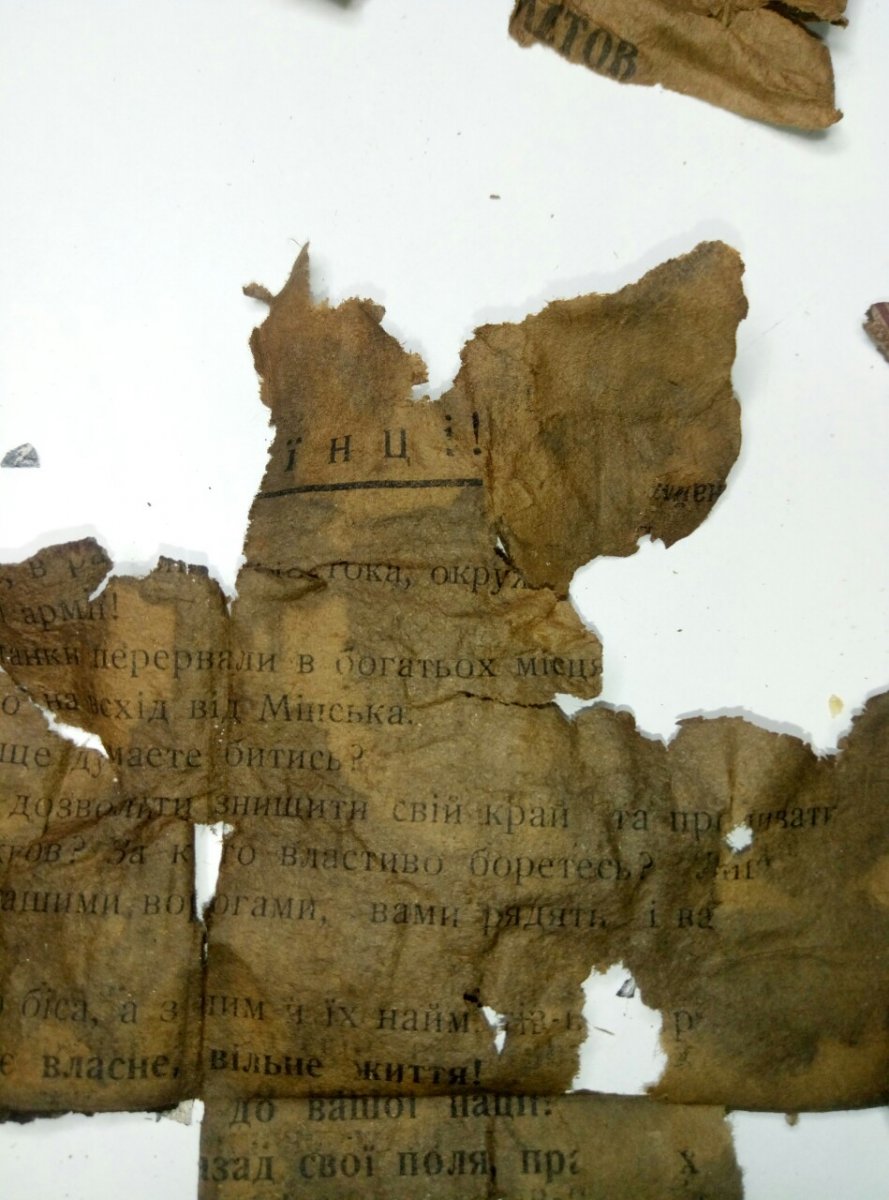 ЛЕТОВ
їнці!
тока, окруж
армії!
танки перервали в богатьох місця
о на схід від Мінська.
ще думаете битись?
дозволити знищити свій край та пр
кров? За кого властиво боретесь?
ашими ворогами, вами рядять і ва
біса, а з ним й їх найм
є власне, вільне життя!
до вашої нації!
азад свої поля, пра х